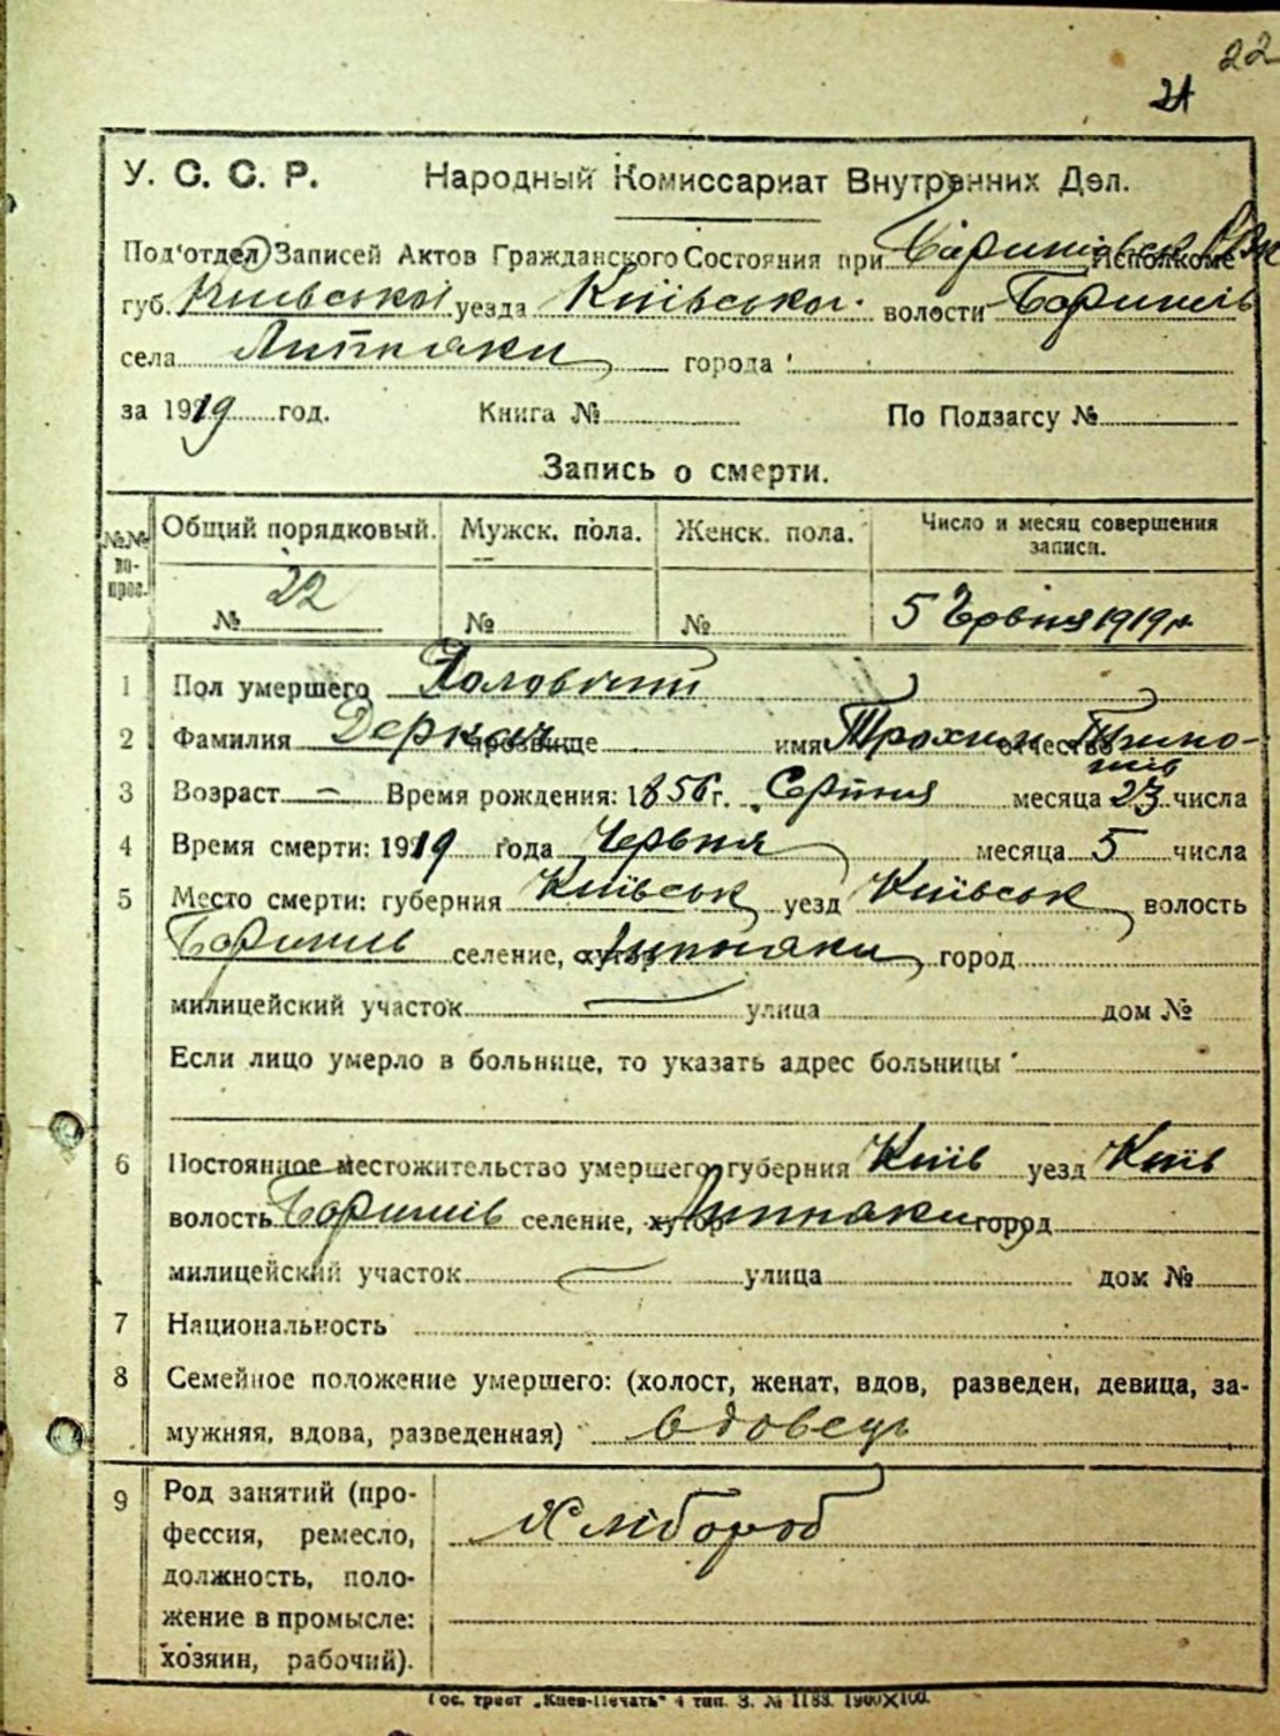 22
21
У. С. С. Р. Народный Комиссариат Внутренних Дел.
Под'отдел Записей Актов Гражданского Состояния при Исполкоме
губ. Київської уезда Київської волости Бориспіль
села Липняки города
за 1919 год. Книга № По Подзагсу №
Запись о смерти.
№№ вопрос. Общий порядковый. Мужск. пола. Женск. пола. Число и месяц совершения записи.
№ 22 № № 5 Червня 1919 р
1 Пол умершего Чоловічий
2 Фамилия Деркач прозвище имя Трохим отчество Тимо-
фіїв
3 Возраст — Время рождения: 1856 г. Серпня месяца 23 числа
4 Время смерти: 1919 года Червня месяца 5 числа
5 Место смерти: губерния Київськ уезд Київськ волость
Бориспіль селение, хутор Липняки город
милицейский участок улица дом №
Если лицо умерло в больнице, то указать адрес больницы
6 Постоянное местожительство умершего губерния Київ уезд Київ
волость Бориспіль селение, хутор Липняки город
милицейский участок улица дом №
7 Национальность
8 Семейное положение умершего: (холост, женат, вдов, разведен, девица, за-
мужняя, вдова, разведенная) вдовець
9 Род занятий (про-
фессия, ремесло, Хлібороб
должность, поло-
жение в промысле:
хозяин, рабочий).
Гос. трест „Киев-Печать" 4 тип. З. № 1183. 1900×100.